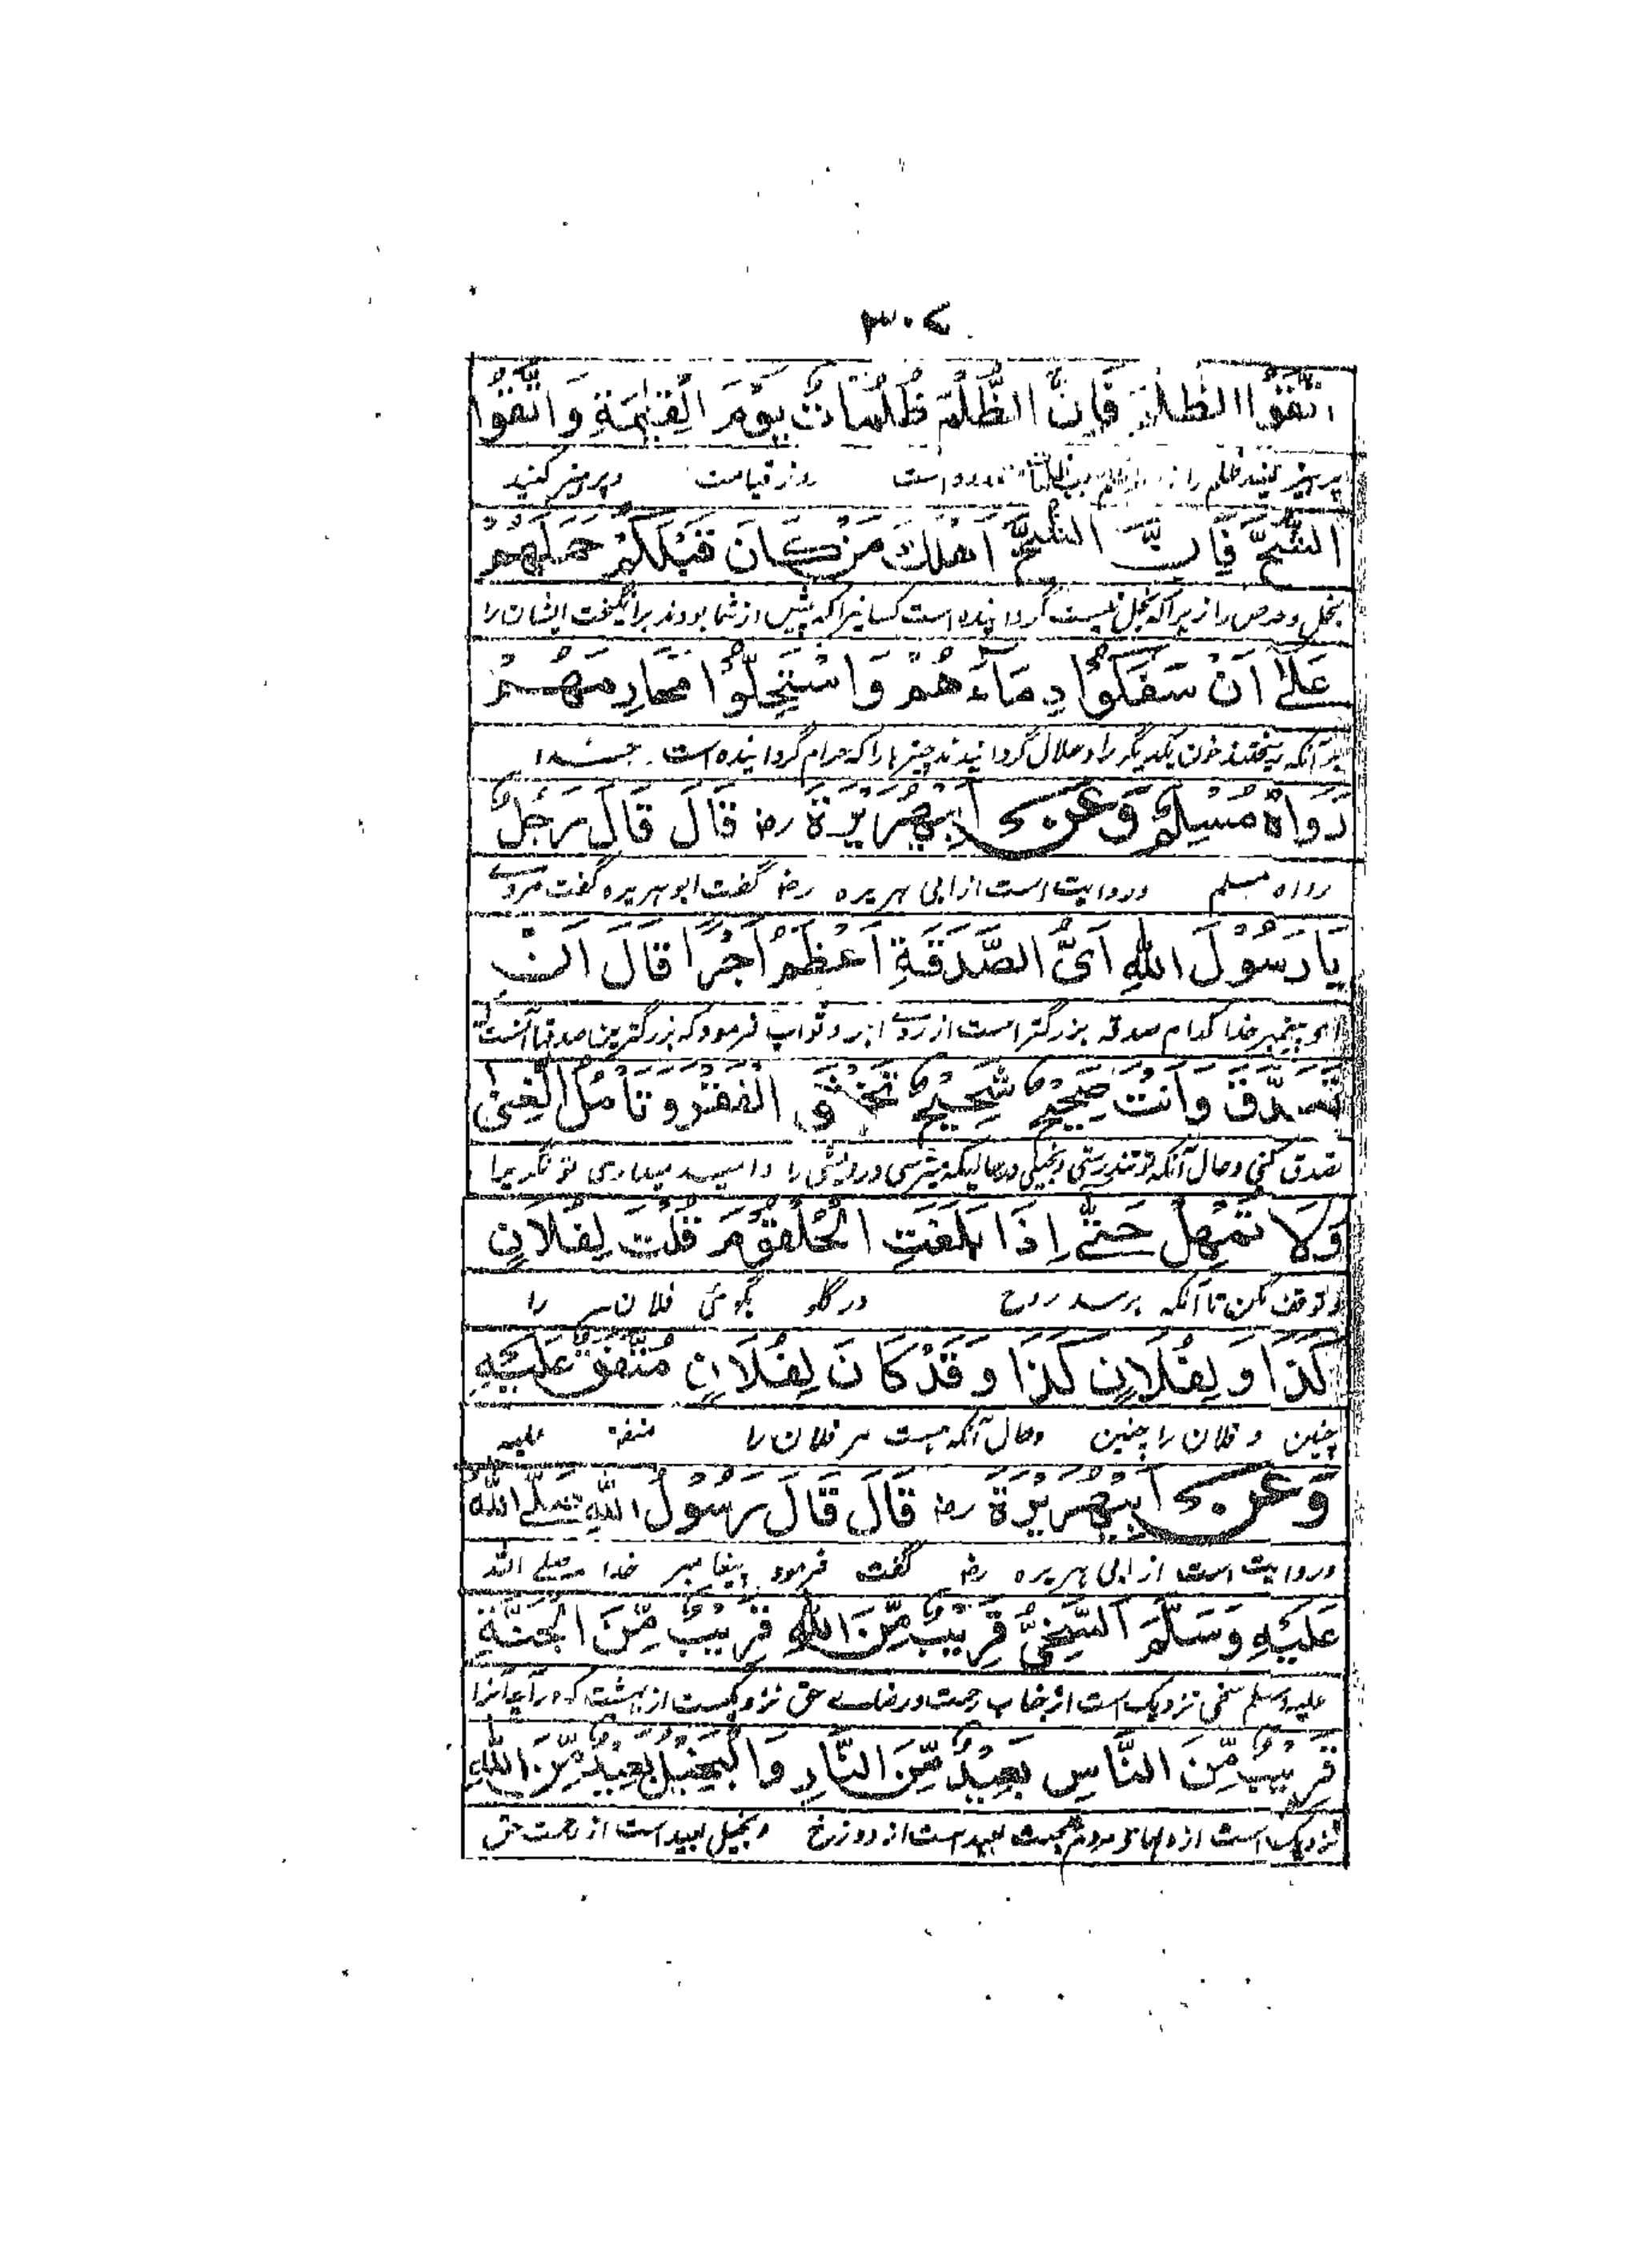 ٣٠٤
اتَّقُوا الظُّلْمَ فَإِنَّ الظُّلْمَ ظُلُمَاتٌ يَوْمَ الْقِيٰمَةِ وَاتَّقُوا
پرہیز کنید ظلم را است روز قیامت وپرہیز کنید
الشُّحَّ فَإِنَّ الشُّحَّ اَهْلَكَ مَنْ كَانَ قَبْلَكُمْ حَمَلَهُمْ
بخل وحرص را زیرا کہ بخل گردانیدہ است کسانیرا کہ پیش از شما بودند برانگیخت ایشان را
عَلٰى اَنْ سَفَكُوْا دِمَاءَهُمْ وَاسْتَحَلُّوْا مَحَارِمَهُمْ
برآنکہ ریختند خون یکدیگر را وحلال گردانیدند چیزہا را کہ حرام گردانیدہ است
رَوَاهُ مُسْلِمٌ وَعَنْ اَبِيْهُرَيْرَةَ رض قَالَ قَالَ رَجُلٌ
رواہ مسلم وروایت است از ابی ہریرہ رض گفت ابوہریرہ گفت مردے
يَا رَسُوْلَ اللهِ اَىُّ الصَّدَقَةِ اَعْظَمُ اَجْرًا قَالَ اَنْ
پیغمبر خدا کدام صدقہ بزرگتر است از روے اجر وثواب فرمود کہ بزرگترین صدقہا آنست
تَصَدَّقَ وَاَنْتَ صَحِيْحٌ شَحِيْحٌ تَخْشَى الْفَقْرَ وَتَأْمُلُ الْغِنٰى
تصدق کنی وحال آنکہ تو تندرستی وبخیلی درحالیکہ میترسی درویشی را وامید میداری تونگریرا
وَلَا تُمْهِلْ حَتّٰى اِذَا بَلَغَتِ الْحُلْقُوْمَ قُلْتَ لِفُلَانٍ
وتوقف مکن تا آنکہ برسد روح در گلو بگوئی فلان را
كَذَا وَلِفُلَانٍ كَذَا وَقَدْ كَانَ لِفُلَانٍ مُتَّفَقٌ عَلَيْهِ
چنین وفلان را چنین وحال آنکہ ہست مر فلان را متفق علیہ
وَعَنْ اَبِيْهُرَيْرَةَ رض قَالَ قَالَ رَسُوْلُ اللهِ صَلَّى اللهُ
وروایت است از ابی ہریرہ رض گفت فرمود پیغامبر خدا صلے اللہ
عَلَيْهِ وَسَلَّمَ السَّخِىُّ قَرِيْبٌ مِّنَ اللهِ قَرِيْبٌ مِّنَ الْجَنَّةِ
علیہ وسلم سخی نزدیک است از جناب رحمت ورضاے حق نزدیکست از بہشت کہ
قَرِيْبٌ مِّنَ النَّاسِ بَعِيْدٌ مِّنَ النَّارِ وَالْبَخِيْلُ بَعِيْدٌ مِّنَ اللهِ
نزدیک است از دلہا مردم بعید است از دوزخ وبخیل بعید است از رحمت حق